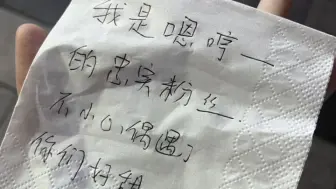 我是嗯哼一
的忠实粉丝.
不小心偶遇了
你们好想